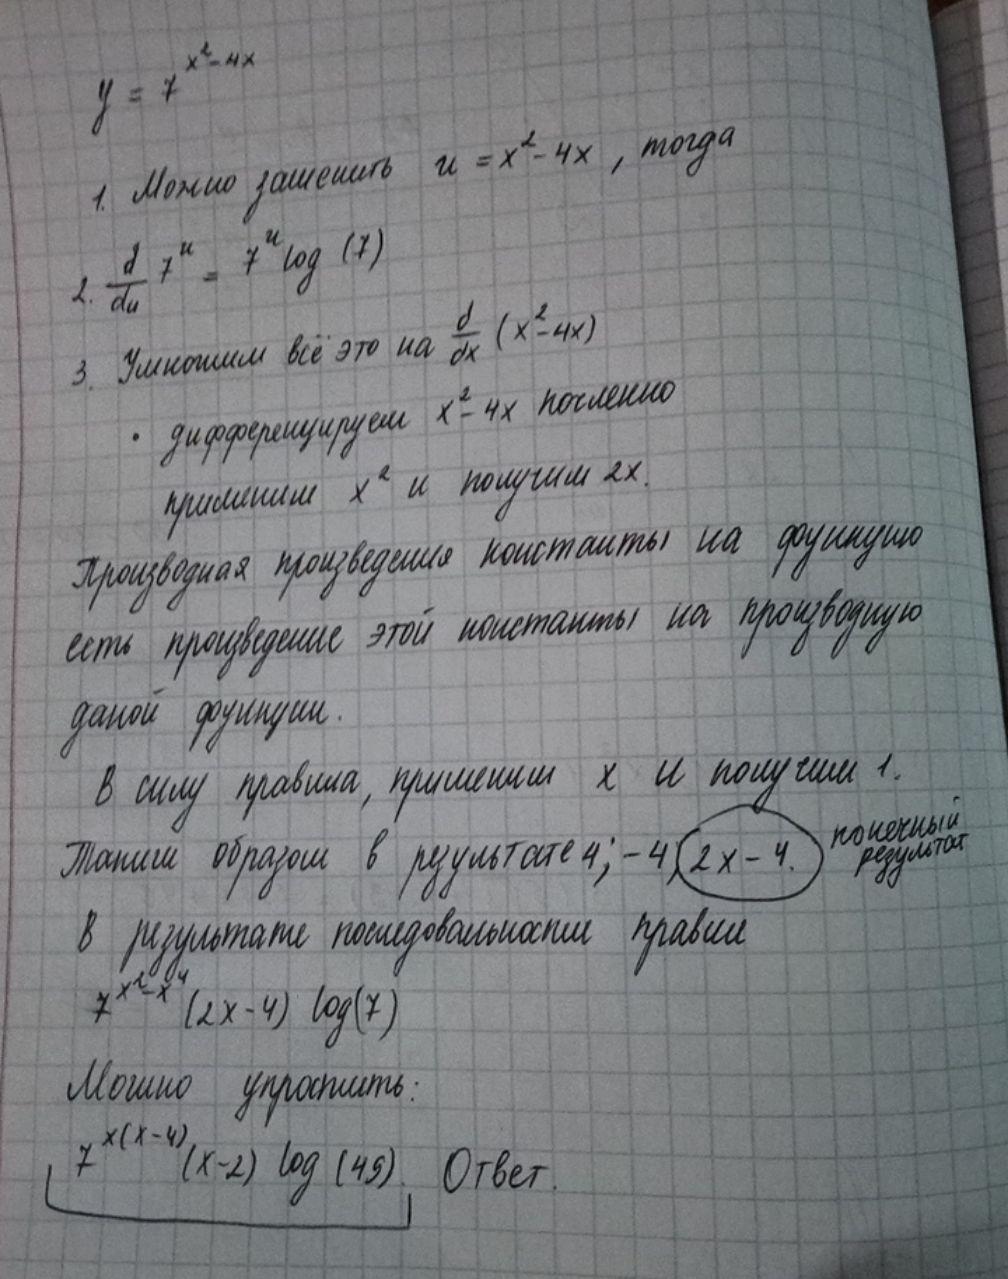 y = 7^{x^2-4x}
1. Можно заменить u = x^2-4x, тогда
2. \frac{d}{du} 7^u = 7^u log (7)
3. Умножим всё это на \frac{d}{dx} (x^2-4x)
• дифференцируем x^2-4x почленно
применим x^2 и получим 2x.
Производная произведения константы на функцию
есть произведение этой константы на производную
даной функции.
В силу правила, применим x и получим 1.
Таким образом в результате 4; -4, 2x-4. конечный результат
В результате последовательности правил
7^{x^2-x^4} (2x-4) log(7)
Можно упростить:
7^{x(x-4)} (x-2) log (49) Ответ.